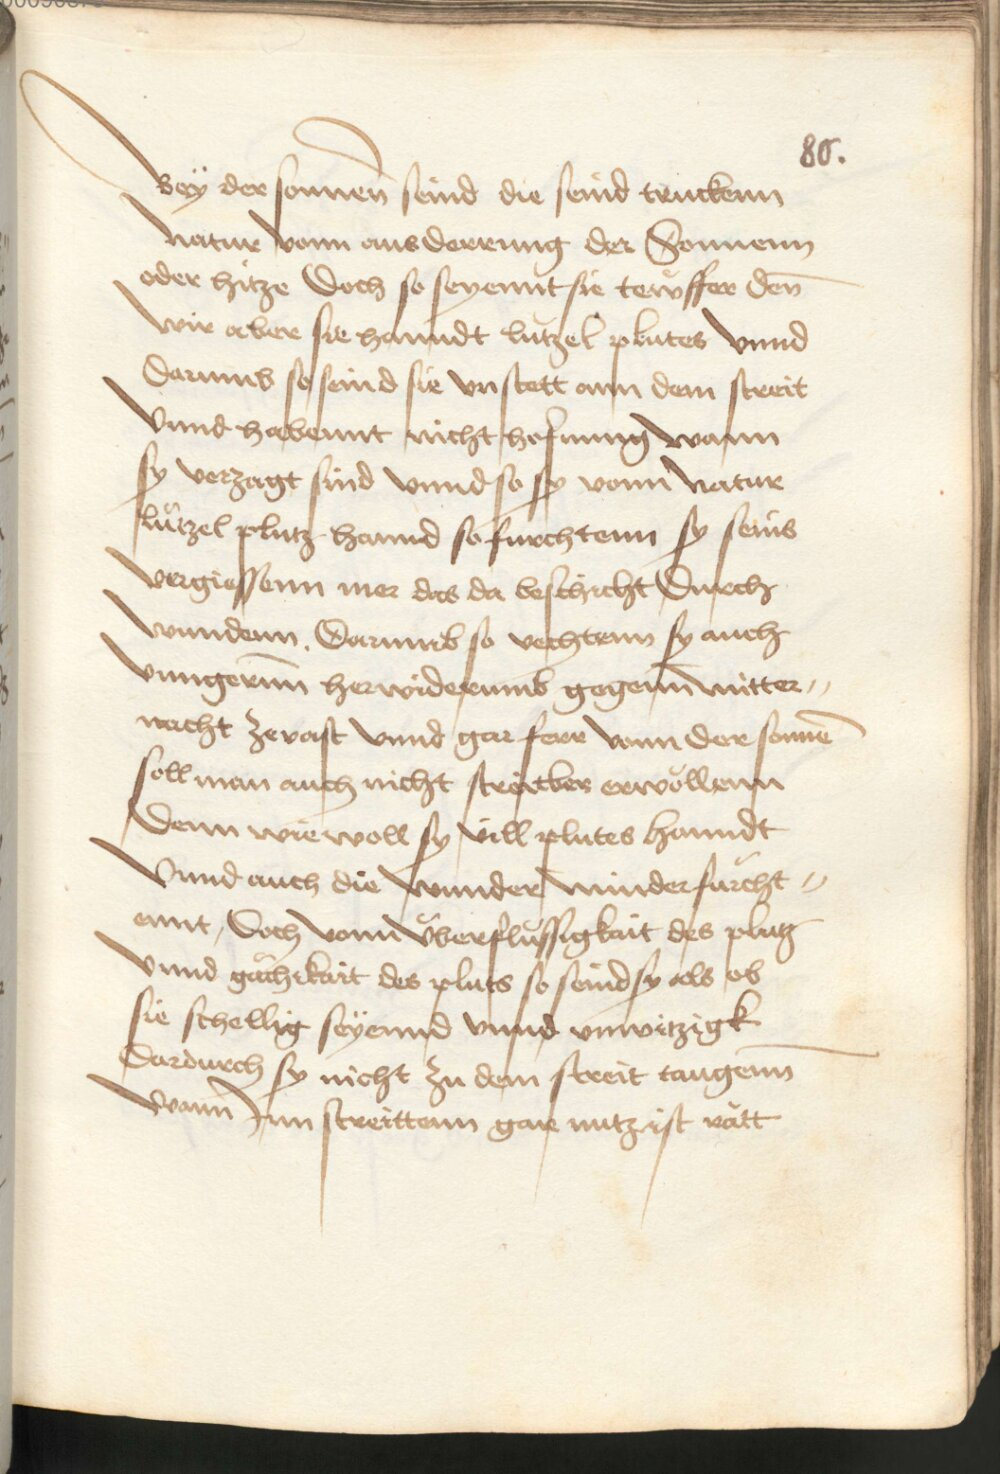 80.
Beÿ der sonnen̄ seind die seind truckenn
natur vonn ausderrung der Sonnenn
oder hitze Doch so seyennt sie tewffer den̄
wir aber sie hanndt lützel plutes vnnd
Darumb so seind sie vnstett ann dem streit
vnnd habennt nicht hofnung wann
sy verzagt sind vnnd so sy vonn natur
lützel plutz hannd so furchtenn sy seins
vergiessenn mer das da beschicht Durch
wundenn. Darumb so vechtenn sy auch
vnngern̄n herwiderumb gegenn mitter"
nacht zevast vnnd gar ferr vonn der sonnē
soll man auch nicht streitber erwöllenn
Denn wiewoll sy vill plutes hanndt
Vnnd auch die wunder minder fürcht"
ennt, Doch vonn überflüssigkait des plutz
vnnd gächikait des pluts so seind sy als ob
sie schellig seÿennd vnnd vnwitzigk
Dardurch sy nicht zu dem streit taugenn̄
Wann Jnn streittenn gar nutz ist rätt